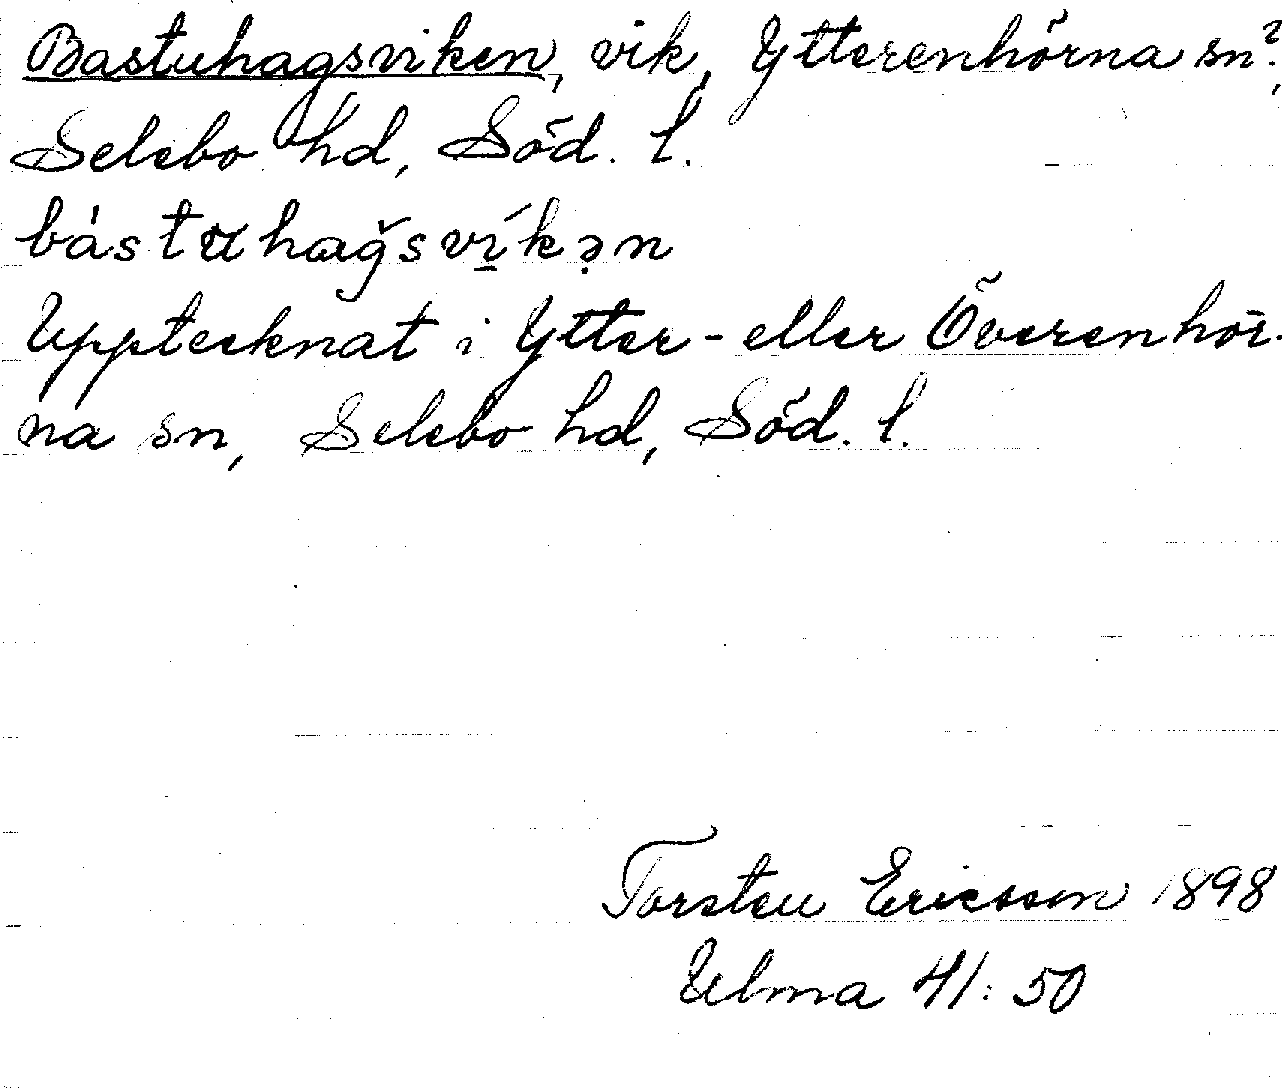 Bastuhagsviken, vik, Ytterenhörna sn?,
Selebo hd, Söd. l.
bástuhaǧsví̱kə̣n
Upptecknat i Ytter- eller Överenhör-
na sn, Selebo hd, Söd. l.
Torsten Ericsson 1898
Ulma 41:50